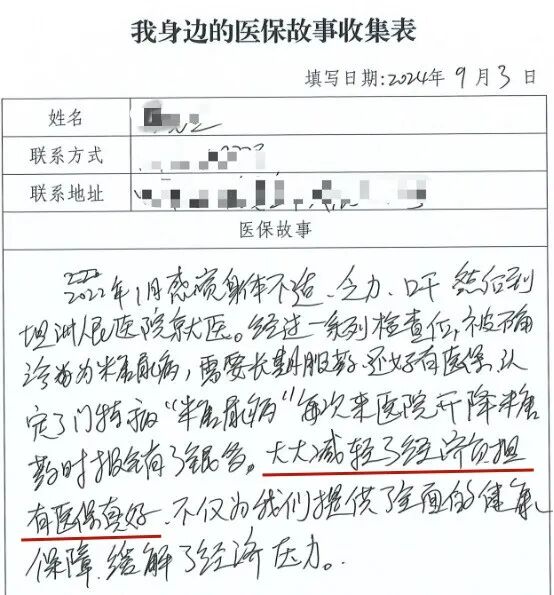 我身边的医保故事收集表
填写日期:2024年9月3日
姓名
联系方式
联系地址
医保故事
2022年1月感觉身体不适、乏力、口干 然后到
坦洲人民医院就医。经过一系列检查后,被确
诊为糖尿病,需要长期服药.还好有医保,认
定了门特病"糖尿病"每次来医院开降糖
药时报
大大减轻了经济负担
有医保真好、不仅为我们提供了全面的健康
保障.缓解了经济压力。